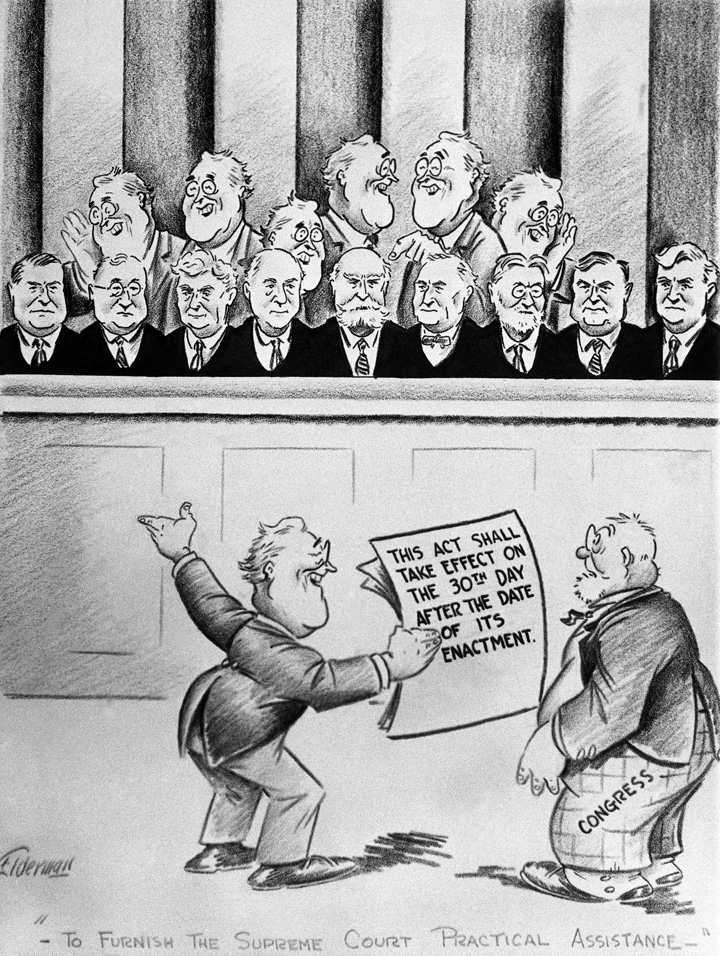 THIS ACT SHALL
TAKE EFFECT ON
THE 30TH DAY
AFTER THE DATE
OF ITS
ENACTMENT.
CONGRESS
Elderman
"- TO FURNISH THE SUPREME COURT PRACTICAL ASSISTANCE -"